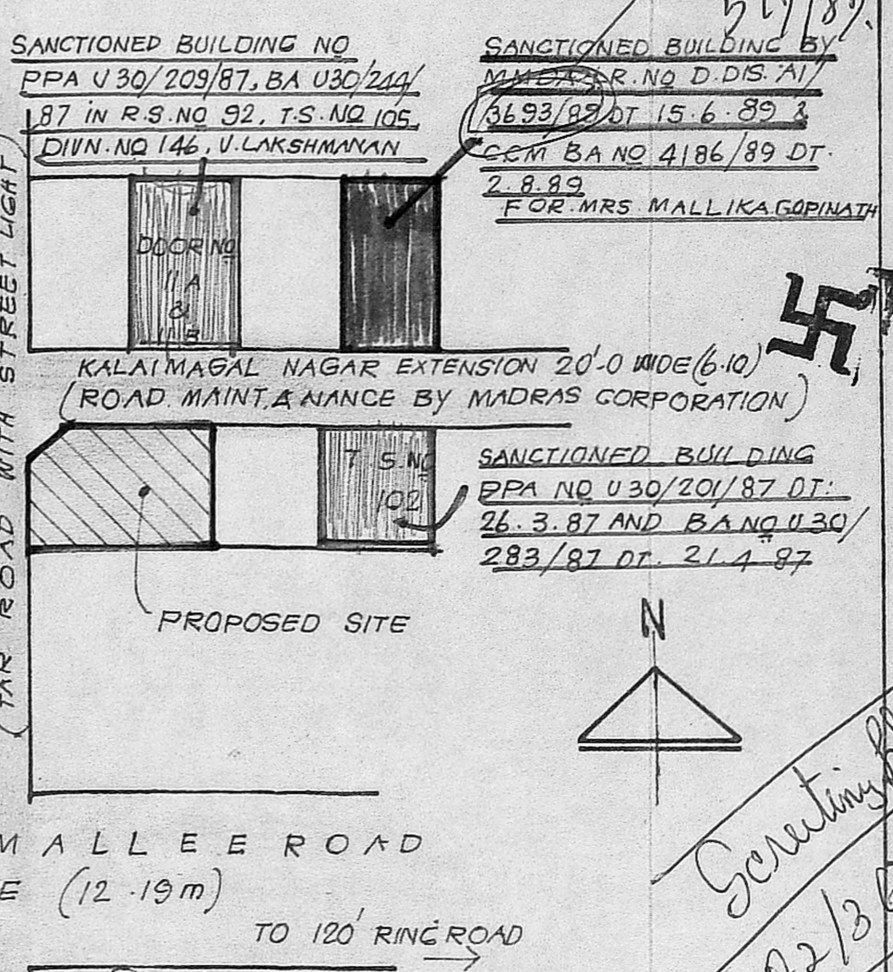 SANCTIONED BUILDING NO
PPA U 30/209/87, BA U30/244/
87 IN R.S.NO 92, T.S.NO 105,
DIVN.NO 146, V.LAKSHMANAN
SANCTIONED BUILDING BY
R.NO D.DIS. A1/
3693/89 DT 15.6.89 &
CCM BA NO 4186/89 DT.
2.8.89
FOR.MRS.MALLIKA.GOPINATH
DOOR NO
11 A
&
11 B
KALAIMAGAL NAGAR EXTENSION 20'-0 WIDE (6.10)
(ROAD MAINTANANCE BY MADRAS CORPORATION)
T S.NO
102
SANCTIONED BUILDING
PPA NO U30/201/87 DT:
26.3.87 AND BA NO U30/
283/87 DT. 21.4.87
PROPOSED SITE
N
(TAR ROAD WITH STREET LIGHT)
MALLEE ROAD
E (12.19m)
TO 120' RING ROAD